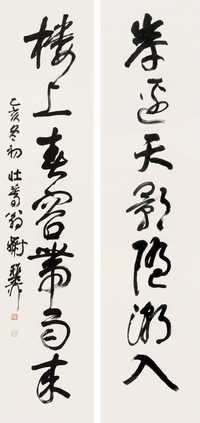 岸邊天影隨潮入
樓上春容帶雨來
乙亥冬初 壯暮翁 謝稚